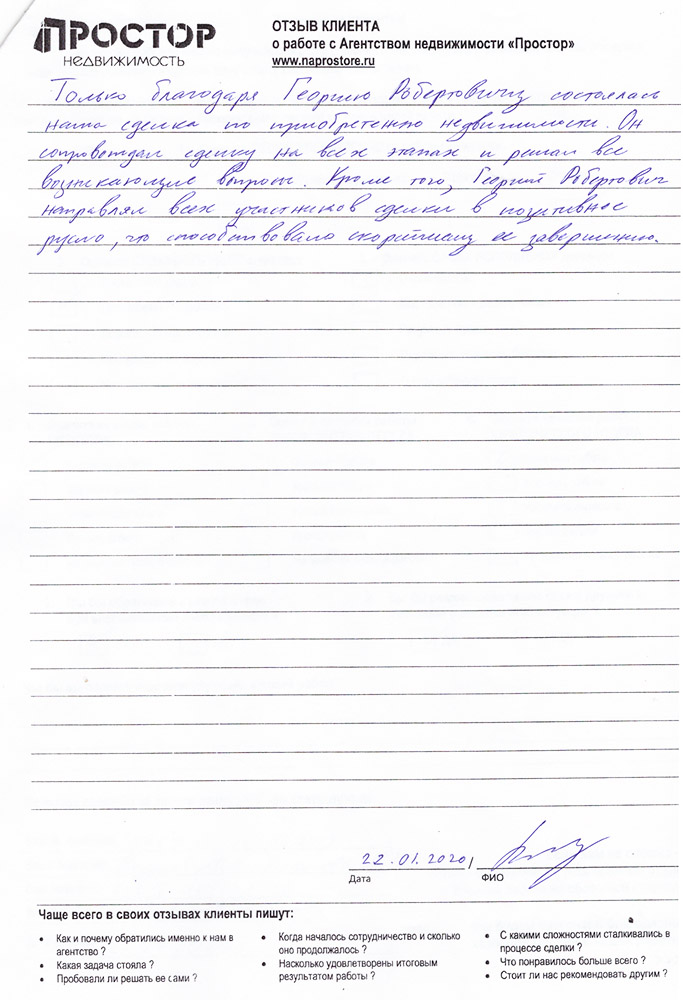 ПРОСТОР
НЕДВИЖИМОСТЬ
ОТЗЫВ КЛИЕНТА
о работе с Агентством недвижимости «Простор»
www.naprostore.ru
Только благодаря Георгию Робертовичу состоялась
наша сделка по приобретению недвижимости. Он
сопровождал сделку на всех этапах и решал все
возникающие вопросы. Кроме того, Георгий Робертович
направлял всех участников сделки в позитивное
русло, что способствовало скорейшему ее завершению.
22.01.2020 /
Дата
ФИО
Чаще всего в своих отзывах клиенты пишут:
• Как и почему обратились именно к нам в
агентство ?
• Какая задача стояла ?
• Пробовали ли решать ее сами ?
• Когда началось сотрудничество и сколько
оно продолжалось ?
• Насколько удовлетворены итоговым
результатом работы ?
• С какими сложностями сталкивались в
процессе сделки ?
• Что понравилось больше всего ?
• Стоит ли нас рекомендовать другим ?